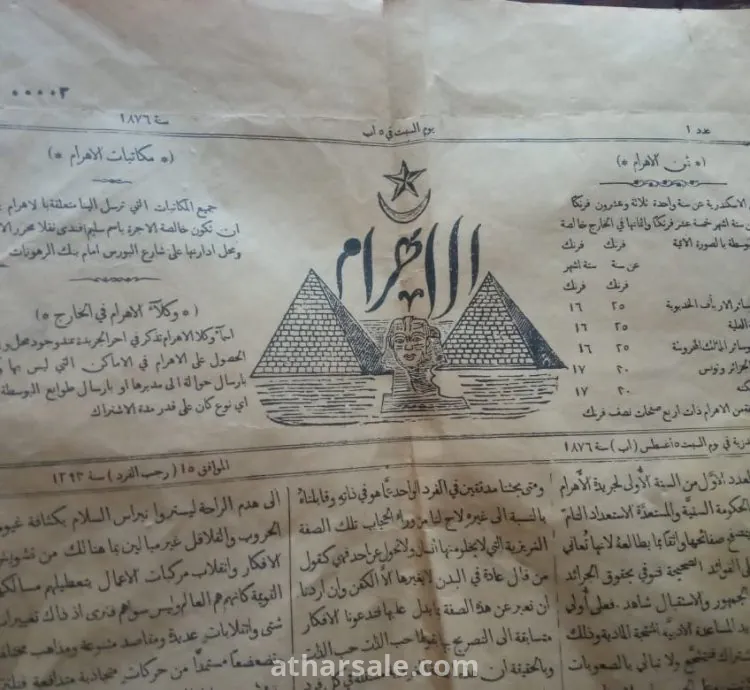 ٠٠٠٠٣
عدد ١
يوم السبت في ٥ اب
سنة ١٨٧٦
(* ثمن الاهرام *)
الاسكندرية عن سنة واحدة ثلاثة وعشرون فرنكا
ستة اشهر خمسة عشر فرنكا واثمانها في الخارج خالصة
بالصورة الاتية فرنك فرنك
عن سنة ستة اشهر
فرنك فرنك
سائر الارياف الخديوية ٢٥ ١٦
٢٥ ١٦
وسائر الممالك المحروسة ٢٥ ١٦
الجزائر وتونس ٣٠ ١٧
٣٠ ١٧
من الاهرام ذات اربع صفحات نصف فرنك
الاهرام
(* مكاتبات الاهرام *)
جميع المكاتبات التي ترسل الينا متعلقة بالاهرام
ان تكون خالصة الاجرة باسم سليم افندي نقلا محرر
ومحل ادارتها على شارع البورس امام بنك الرهونات
(* وكلاء الاهرام في الخارج *)
اسماء وكلا الاهرام تذكر في اخر الجريدة عند وجود محل
الحصول على الاهرام في الاماكن التي ليس بها
بارسال حوالة الى مديرها او بارسال طوابع البوسطة
اي نوع كان على قدر مدة الاشتراك
في يوم السبت ٥ اغسطس (اب) سنة ١٨٧٦
الموافق ١٥ (رجب الفرد) سنة ١٢٩٣
العدد الاول من السنة الأولى لجريدة الأهرام
الحكومة السنية والمستعدة الاستعداد التام
صفائحها واثقا بما يطالعه لانها تعاني
الفوائد الصحيحة فتوفي بحقوق الجرائد
الجمهور والاستقبال شاهد . فعلى أولي
المساعدة الادبية المنتجة المادية وذلك
ولا نبالي بالصعوبات
ومتى بحثنا مدققين في الفرد الواحد عما هو في ذاته وقابلناه
بالنسبة الى غيره لاح لنا من وراء الحجاب تلك الصفة
الغريزية التي لا يخلو منها انسان ولا تحول عن احد فهي كقول
من قال عادة في البدن لا يغيرها الا الكفن وان اردنا
ان نعبر عن هذه الصفة بما يدل عليها فتدعونا الافكار
متسابقة الى التصريح بانها حب الذات حب الذات
وبالحقيقة ان
الى هدم الراحة ليستروا نبراس السلام بكثافة غيوم
الحروب والقلاقل غير مبالين بما هنالك من تشويش
الافكار وانقلاب مركبات الاعمال بتعطيلهم مسالك
القويمة كانهم هم العالم وليس سواهم فنرى اذ ذاك تغييرات
شتى وانقلابات عديدة ومقاصد متنوعة ومذاهب مختلفة
مستمدا من حركات متجاذبة متدافعة
atharsale.com